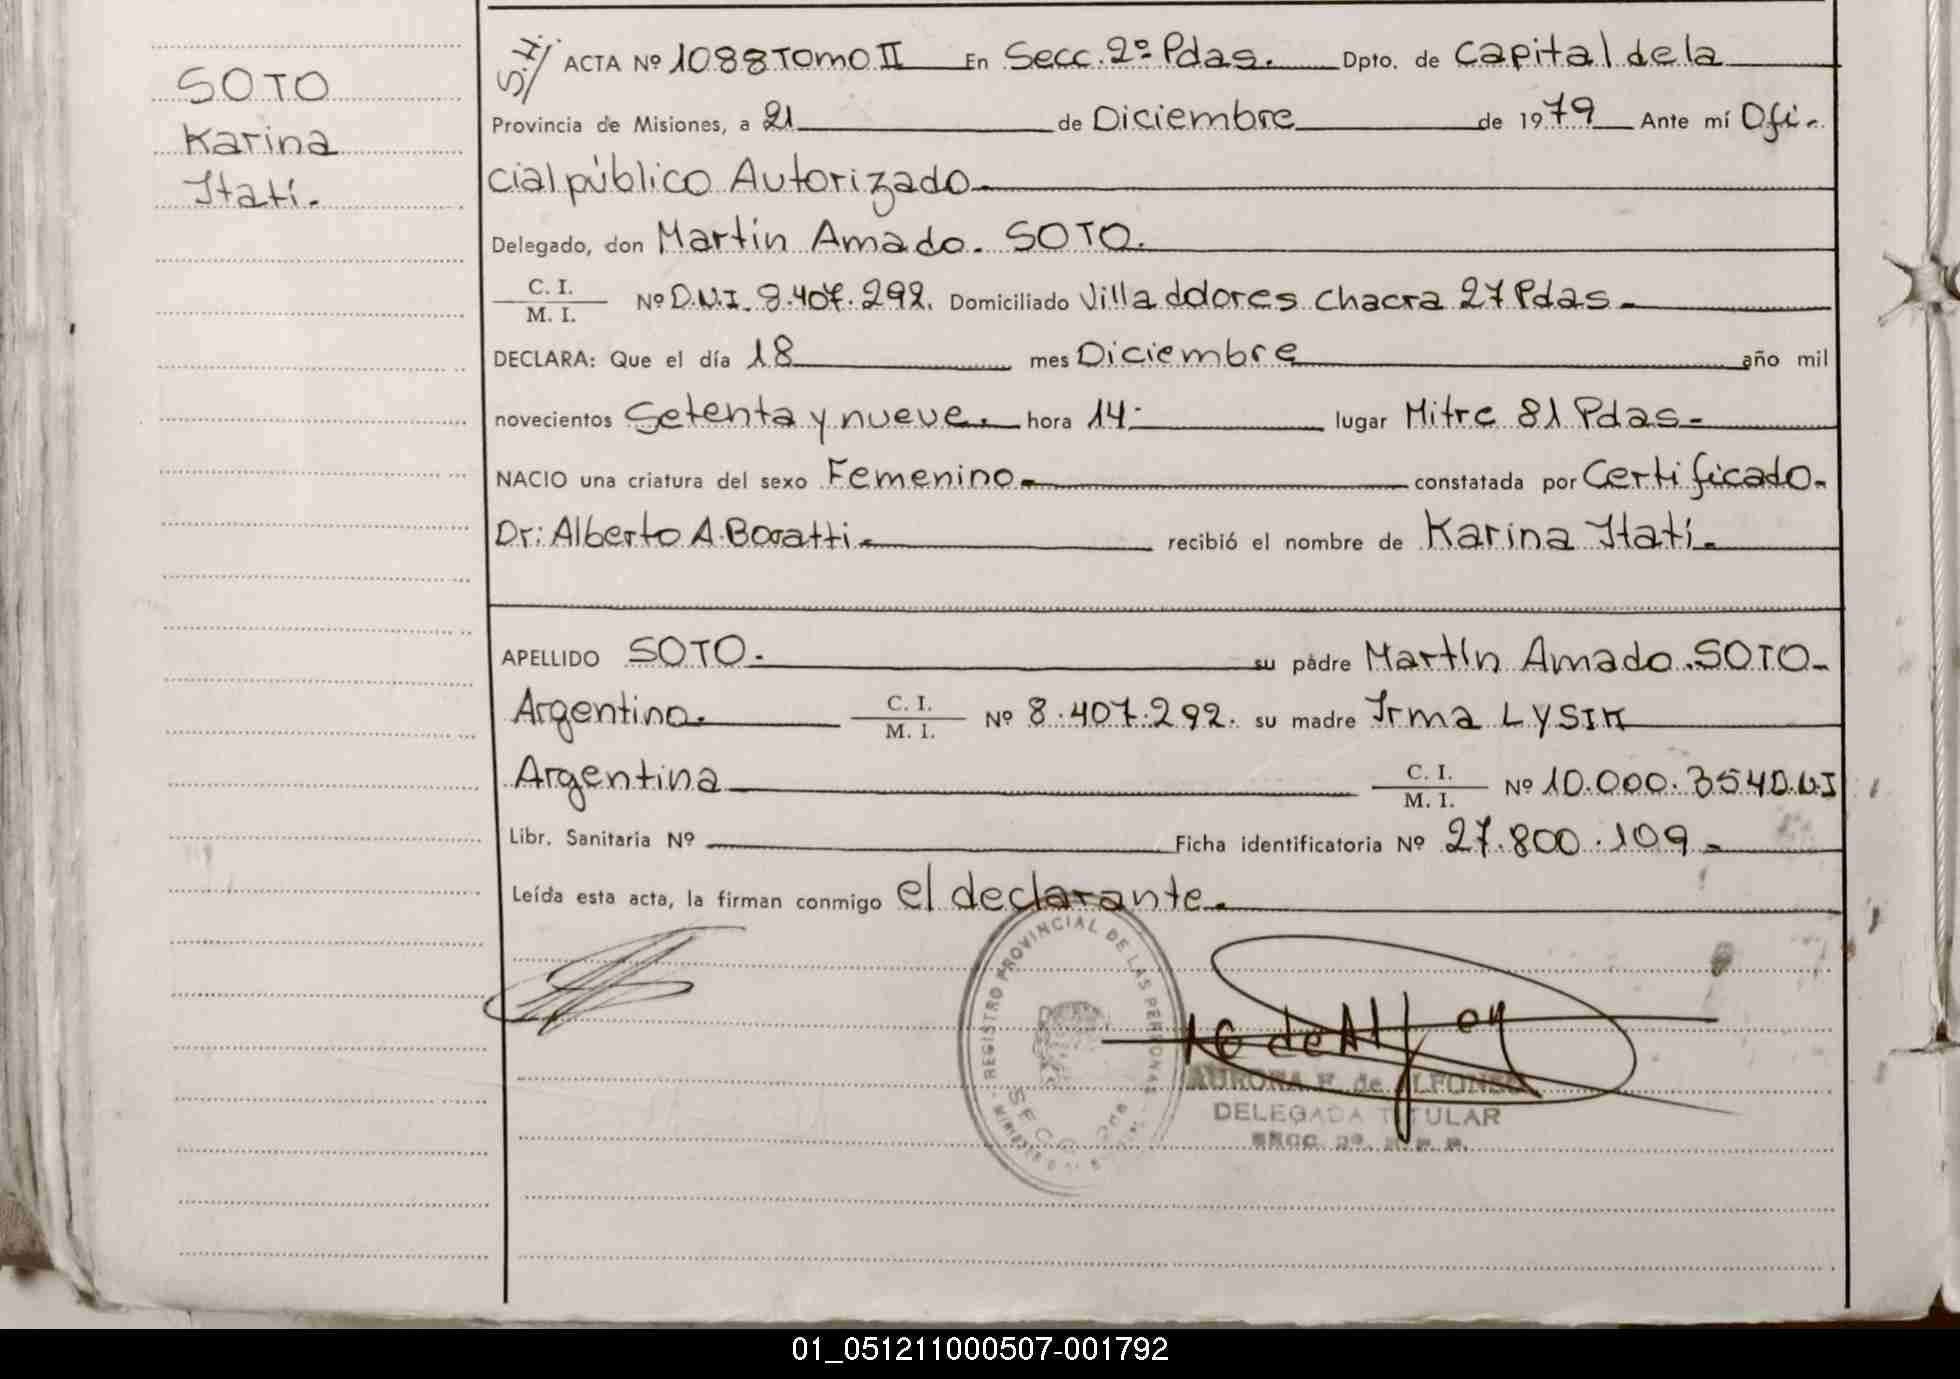 SOTO
Karina
Itatí.
S.H/.
ACTA Nº 1088 Tomo II En Secc. 2º Pdas. Dpto. de Capital de la
Provincia de Misiones, a 21 de Diciembre de 1979 Ante mí Ofi-
cial público Autorizado
Delegado, don Martín Amado. SOTO.
C. I.
M. I. Nº D.N.I. 8.407.292. Domiciliado Villa ddores chacra 27 Pdas
DECLARA: Que el día 18 mes Diciembre año mil
novecientos Setenta y nueve. hora 14- lugar Mitre 81 Pdas-
NACIO una criatura del sexo Femenino. constatada por Certificado.
Dr: Alberto A. recibió el nombre de Karina Itatí.
APELLIDO SOTO. su padre Martín Amado SOTO-
Argentino. C. I.
M. I. Nº 8.407.292. su madre Irma LYSIK
Argentina C. I.
M. I. Nº 10.000.354 D.N.I
Libr. Sanitaria Nº Ficha identificatoria Nº 27.800.109-
Leída esta acta, la firman conmigo el declarante.
REGISTRO PROVINCIAL DE LAS PERSONAS
AURORA de ALFONSO
DELEGADA TITULAR
SECC. 2º
01_051211000507-001792